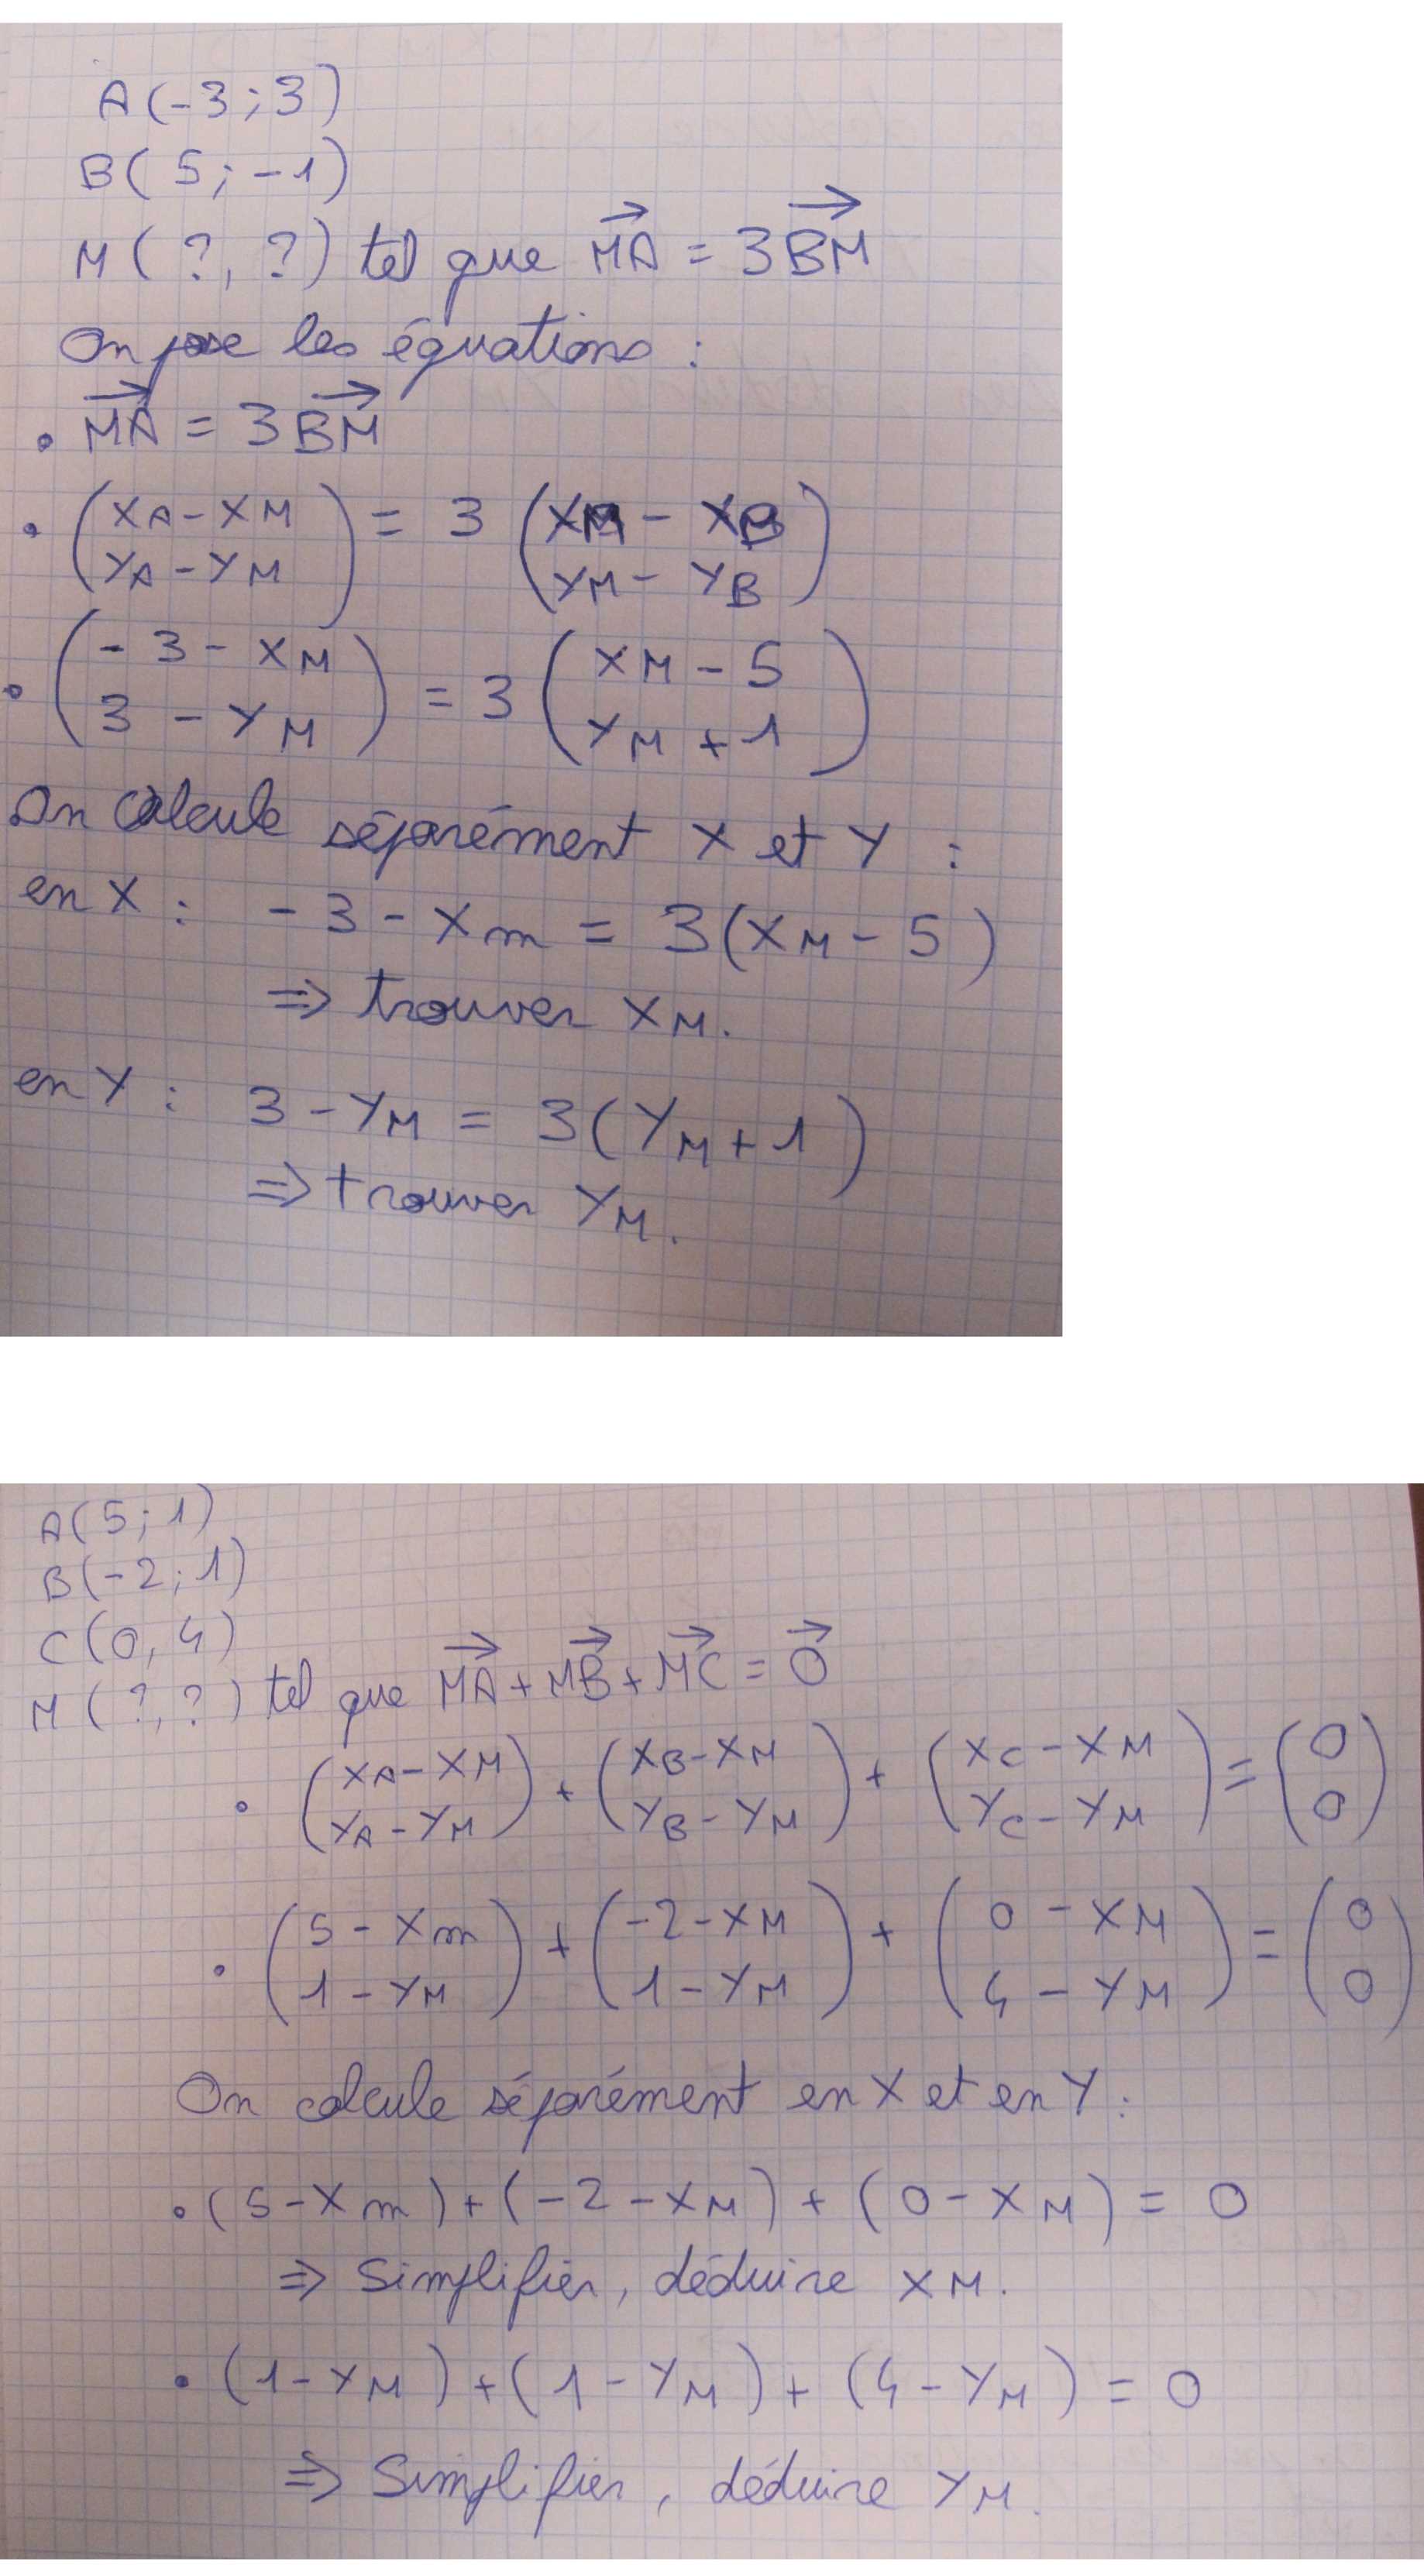 A(-3;3)
B(5;-1)
M(?,?) tel que $\overrightarrow{MA} = 3\overrightarrow{BM}$
On pose les équations :
• $\overrightarrow{MA} = 3\overrightarrow{BM}$
• $\begin{pmatrix} X_A - X_M \\ Y_A - Y_M \end{pmatrix} = 3 \begin{pmatrix} X_M - X_B \\ Y_M - Y_B \end{pmatrix}$
• $\begin{pmatrix} -3 - X_M \\ 3 - Y_M \end{pmatrix} = 3 \begin{pmatrix} X_M - 5 \\ Y_M + 1 \end{pmatrix}$
On calcule séparément X et Y :
en X : $-3 - X_m = 3(X_M - 5)$
⇒ trouver $X_M$.
en Y : $3 - Y_M = 3(Y_M + 1)$
⇒ trouver $Y_M$.
A(5;1)
B(-2;1)
C(0,4)
M(?,?) tel que $\overrightarrow{MA} + \overrightarrow{MB} + \overrightarrow{MC} = \overrightarrow{0}$
• $\begin{pmatrix} X_A - X_M \\ Y_A - Y_M \end{pmatrix} + \begin{pmatrix} X_B - X_M \\ Y_B - Y_M \end{pmatrix} + \begin{pmatrix} X_C - X_M \\ Y_C - Y_M \end{pmatrix} = \begin{pmatrix} 0 \\ 0 \end{pmatrix}$
• $\begin{pmatrix} 5 - X_m \\ 1 - Y_M \end{pmatrix} + \begin{pmatrix} -2 - X_M \\ 1 - Y_M \end{pmatrix} + \begin{pmatrix} 0 - X_M \\ 4 - Y_M \end{pmatrix} = \begin{pmatrix} 0 \\ 0 \end{pmatrix}$
On calcule séparément en X et en Y :
• $(5 - X_m) + (-2 - X_M) + (0 - X_M) = 0$
⇒ Simplifier, déduire $X_M$.
• $(1 - Y_M) + (1 - Y_M) + (4 - Y_M) = 0$
⇒ Simplifier, déduire $Y_M$.